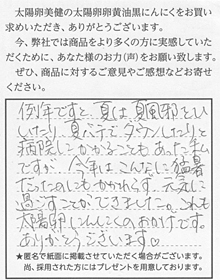 太陽卵美健の太陽卵卵黄油黒にんにくをお買い
求めいただき、ありがとうございます。
今、弊社では商品をより多くの方に実感していた
だくために、あなた様のお力(声)をお願い致します。
ぜひ、商品に対するご意見やご感想などお寄せ
ください。
例年ですと、夏は夏風邪をひ
いたり、夏バテでダウンしたりと
病院にかかることもあった私
ですが、今年はこんなに猛暑
だったのにもかかわらず、元気に
過すことができました。これも
太陽卵にんにくのおかげです。
ありがとうございます♡
★匿名で紙面に掲載させていただく場合がございます。
尚、採用された方にはプレゼントを用意しております。